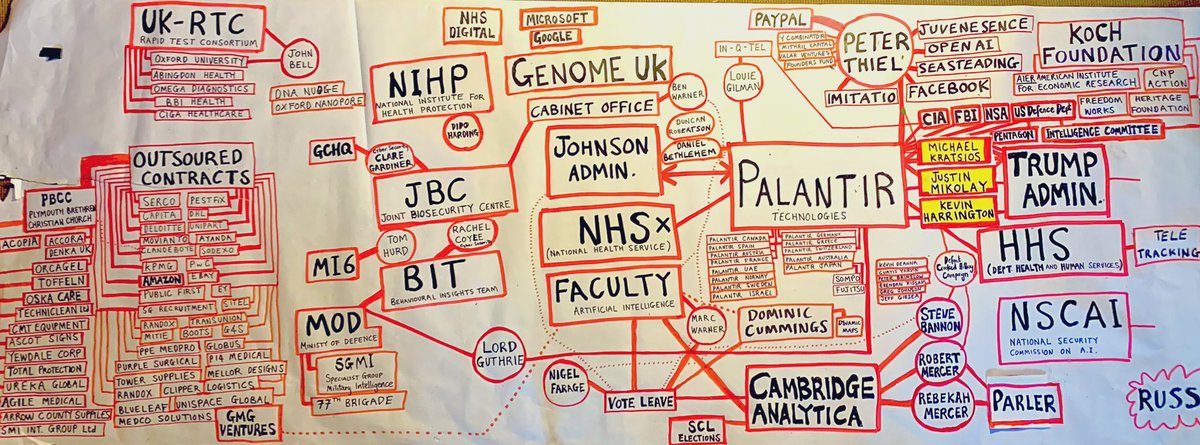 UK-RTC
RAPID TEST CONSORTIUM
OXFORD UNIVERSITY
ABINGDON HEALTH
OMEGA DIAGNOSTICS
BBI HEALTH
CIGA HEALTHCARE
JOHN
BELL
DNA NUDGE
OXFORD NANOPORE
NIHP
NATIONAL INSTITUTE FOR
HEALTH PROTECTION
DIDO
HARDING
NHS
DIGITAL
MICROSOFT
GOOGLE
GENOME UK
CABINET OFFICE
BEN
WARNER
DUNCAN
ROBERTSON
DANIEL
BETHLEHEM
JOHNSON
ADMIN.
IN-Q-TEL
LOUIE
GILMAN
PAYPAL
Y COMBINATOR
MITHRIL CAPITAL
VALAR VENTURES
FOUNDERS FUND
PETER
THIEL
IMITATIO
JUVENESENCE
OPEN AI
SEASTEADING
FACEBOOK
KOCH
FOUNDATION
AIER AMERICAN INSTITUTE
FOR ECONOMIC RESEARCH
CNP
ACTION
FREEDOM
WORKS
HERITAGE
FOUNDATION
CIA
FBI
NSA
US Defence Dept
PENTAGON
INTELLIGENCE COMMITTEE
MICHAEL
KRATSIOS
JUSTIN
MIKOLAY
KEVIN
HARRINGTON
TRUMP
ADMIN.
PALANTIR
TECHNOLOGIES
GCHQ
Cyber Security
CLARE
GARDINER
JBC
JOINT BIOSECURITY CENTRE
OUTSOURED
CONTRACTS
SERCO
PESTFIX
CAPITA
DHL
DELOITTE
UNIPART
MOVIANTO
AYANDA
CLANDEBOYE
SODEXO
KPMG
PwC
EBAY
AMAZON
PUBLIC FIRST
EY
SG RECRUITMENT
SITEL
RANDOX
TRANSUNION
MITIE
BOOTS
G4S
PPE MEDPRO
GLOBUS
PURPLE SURGICAL
P14 MEDICAL
TOWER SUPPLIES
MELLOR DESIGNS
RANDOX
CLIPPER
LOGISTICS
BLUELEAF
UNISPACE GLOBAL
MEDCO SOLUTIONS
GMG
VENTURES
PBCC
PLYMOUTH BRETHREN
CHRISTIAN CHURCH
ACOPIA
ACCORA
DENKA UK
ORCAGEL
TOFFELN
OSKA CARE
TECHNICLEAN
CMT EQUIPMENT
ASCOT SIGNS
YEWDALE CORP
TOTAL PROTECTION
UREKA GLOBAL
AGILE MEDICAL
ARROW COUNTY SUPPLIES
SMI INT. GROUP Ltd
MI6
TOM
HURD
RACHEL
COYEE
Cyber Security
BIT
BEHAVIOURAL INSIGHTS TEAM
MOD
MINISTY OF DEFENCE
SGMI
SPECIALIST GROUP
Military Intelligence
77TH BRIGADE
LORD
GUTHRIE
NHSX
(NATIONAL HEALTH SERVICE)
FACULTY
ARTIFICIAL INTELLIGENCE
MARC
WARNER
NIGEL
FARAGE
VOTE LEAVE
SCL
ELECTIONS
PALANTIR CANADA
PALANTIR SPAIN
PALANTIR AUSTRIA
PALANTIR FRANCE
PALANTIR UAE
PALANTIR NORWAY
PALANTIR SWEDEN
PALANTIR ISRAEL
PALANTIR GERMANY
PALANTIR GREECE
PALANTIR SWITZERLAND
PALANTIR AUSTRALIA
PALANTIR JAPAN
SOMPO
FUJITSU
DOMINIC
CUMMINGS
DYNAMIC
MAPS
CAMBRIDGE
ANALYTICA
KEVIN DEANNA
CURTIS YARVIN
GREG JOHNSON
JEFF GIESEA
STEVE
BANNON
ROBERT
MERCER
REBEKAH
MERCER
PARLER
HHS
(DEPT. HEALTH AND HUMAN SERVICES)
TELE
TRACKING
NSCAI
NATIONAL SECURITY
COMMISSION ON A.I.
RUSS